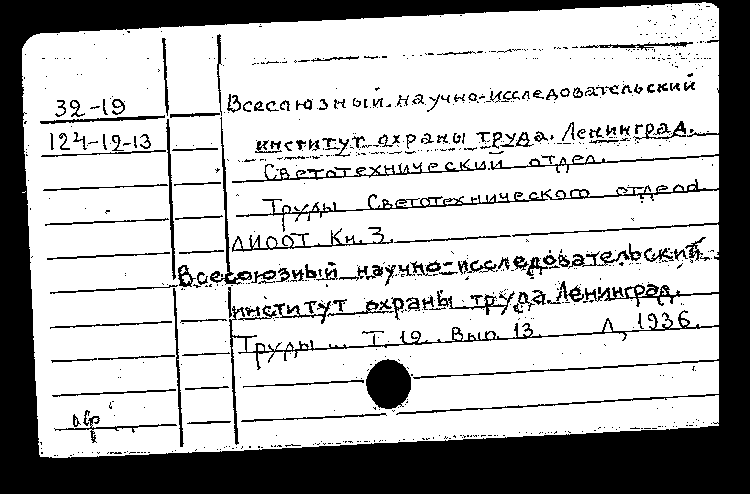 32-19
124-19-13
Всесоюзный научно-исследовательский
институт охраны труда. Ленинград.
Светотехнический отдел.
Труды Светотехнического отдела
ЛИООТ. Кн. 3.
Всесоюзный научно-исследовательский
институт охраны труда. Ленинград.
Труды ... Т. 12. Вып. 13. Л, 1936.